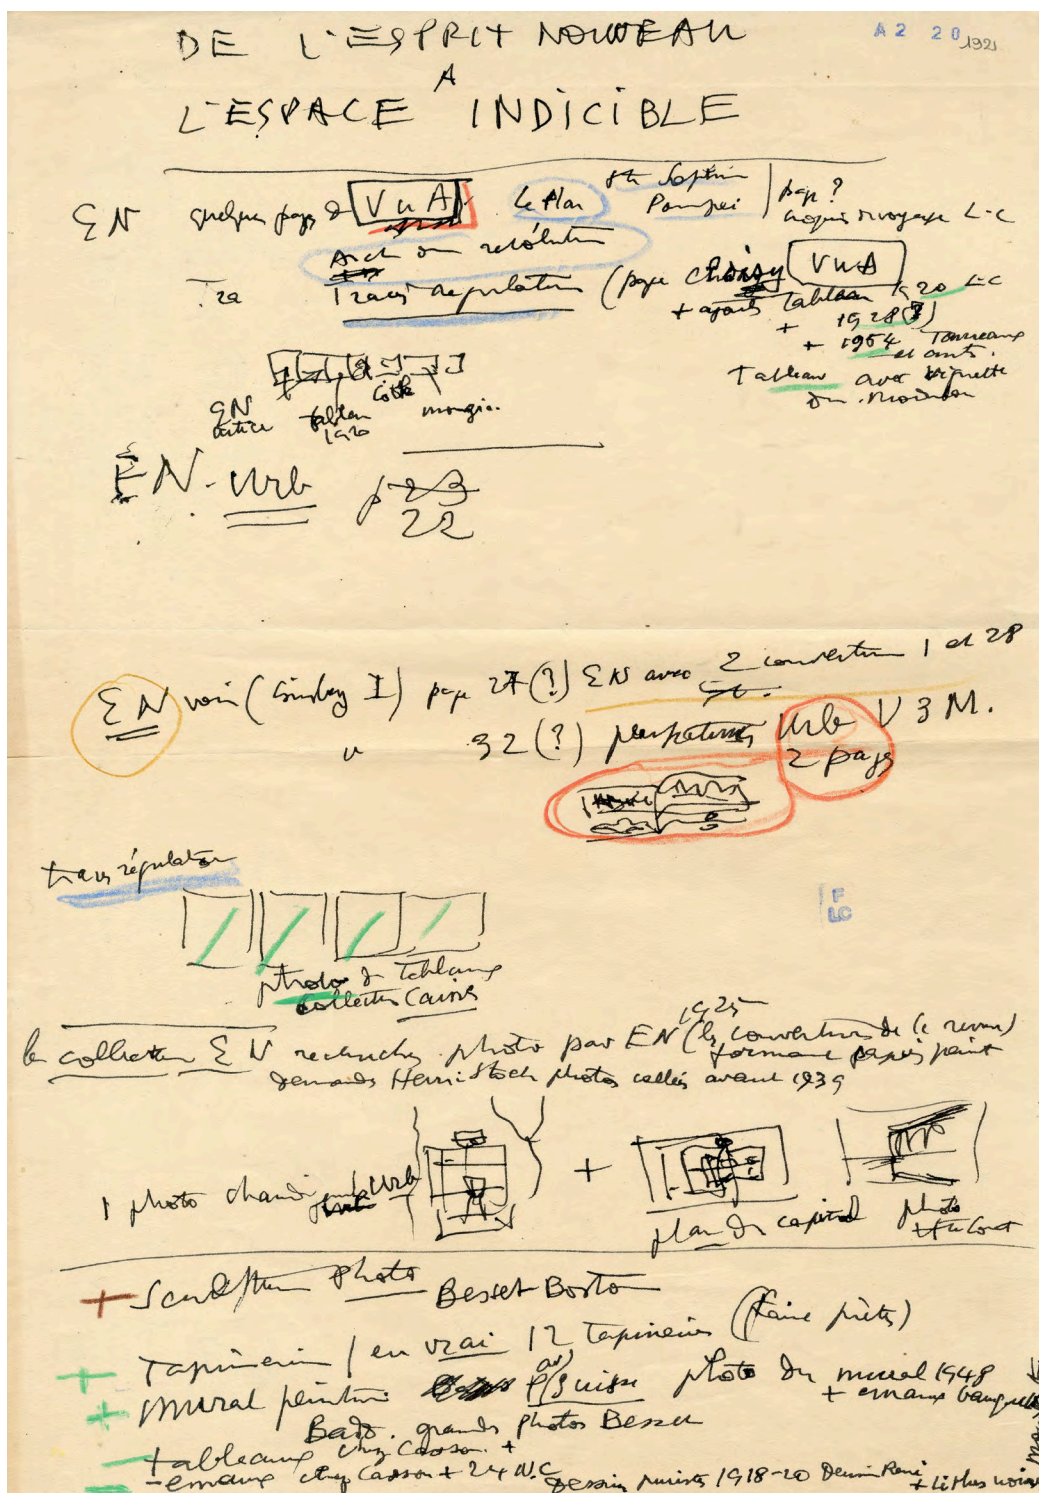 DE L'ESPRIT NOUVEAU
A2 20 1921
A
L'ESPACE INDICIBLE
EN quelques pages de VuA Le Plan Ste Sophie Pompei page ?
croquis voyage L-C
Arch ou révolution
Tra Tracés régulateurs (page choisy VuA
+ ajouter tableau 1920 L-C
+ 1928 (?)
+ 1954 Taureaux
Tableau avec vignette
du modulor
EN tableau
1920
EN. Urb p 23
22
EN voir (Girsberger I) page 27 (?) EN avec 2 couvertures 1 et 28
" 32 (?) perspectives Urb V 3 M.
2 pages
tracés régulateurs
photos de Tableaux
collection
1925
la collection EN rechercher photo pav EN (les couvertures de la revue)
formant papier peint
demander Henri photos collés avant 1939
1 photo chandi Urb + plan du capitol photo
Hte Court
+ Sculpture photo Besset Boston
+ Tapisserie / en vrai 12 tapisseries (faire prêter)
+ mural peinture pav Suisse photo du mural 1948
+ emaux
Bado. grandes photos Besset
- tableaux chez Cassou +
- emaux chez Cassou + 24 N.C dessin puriste 1918-20 Dessin René + Lithos
F
LC